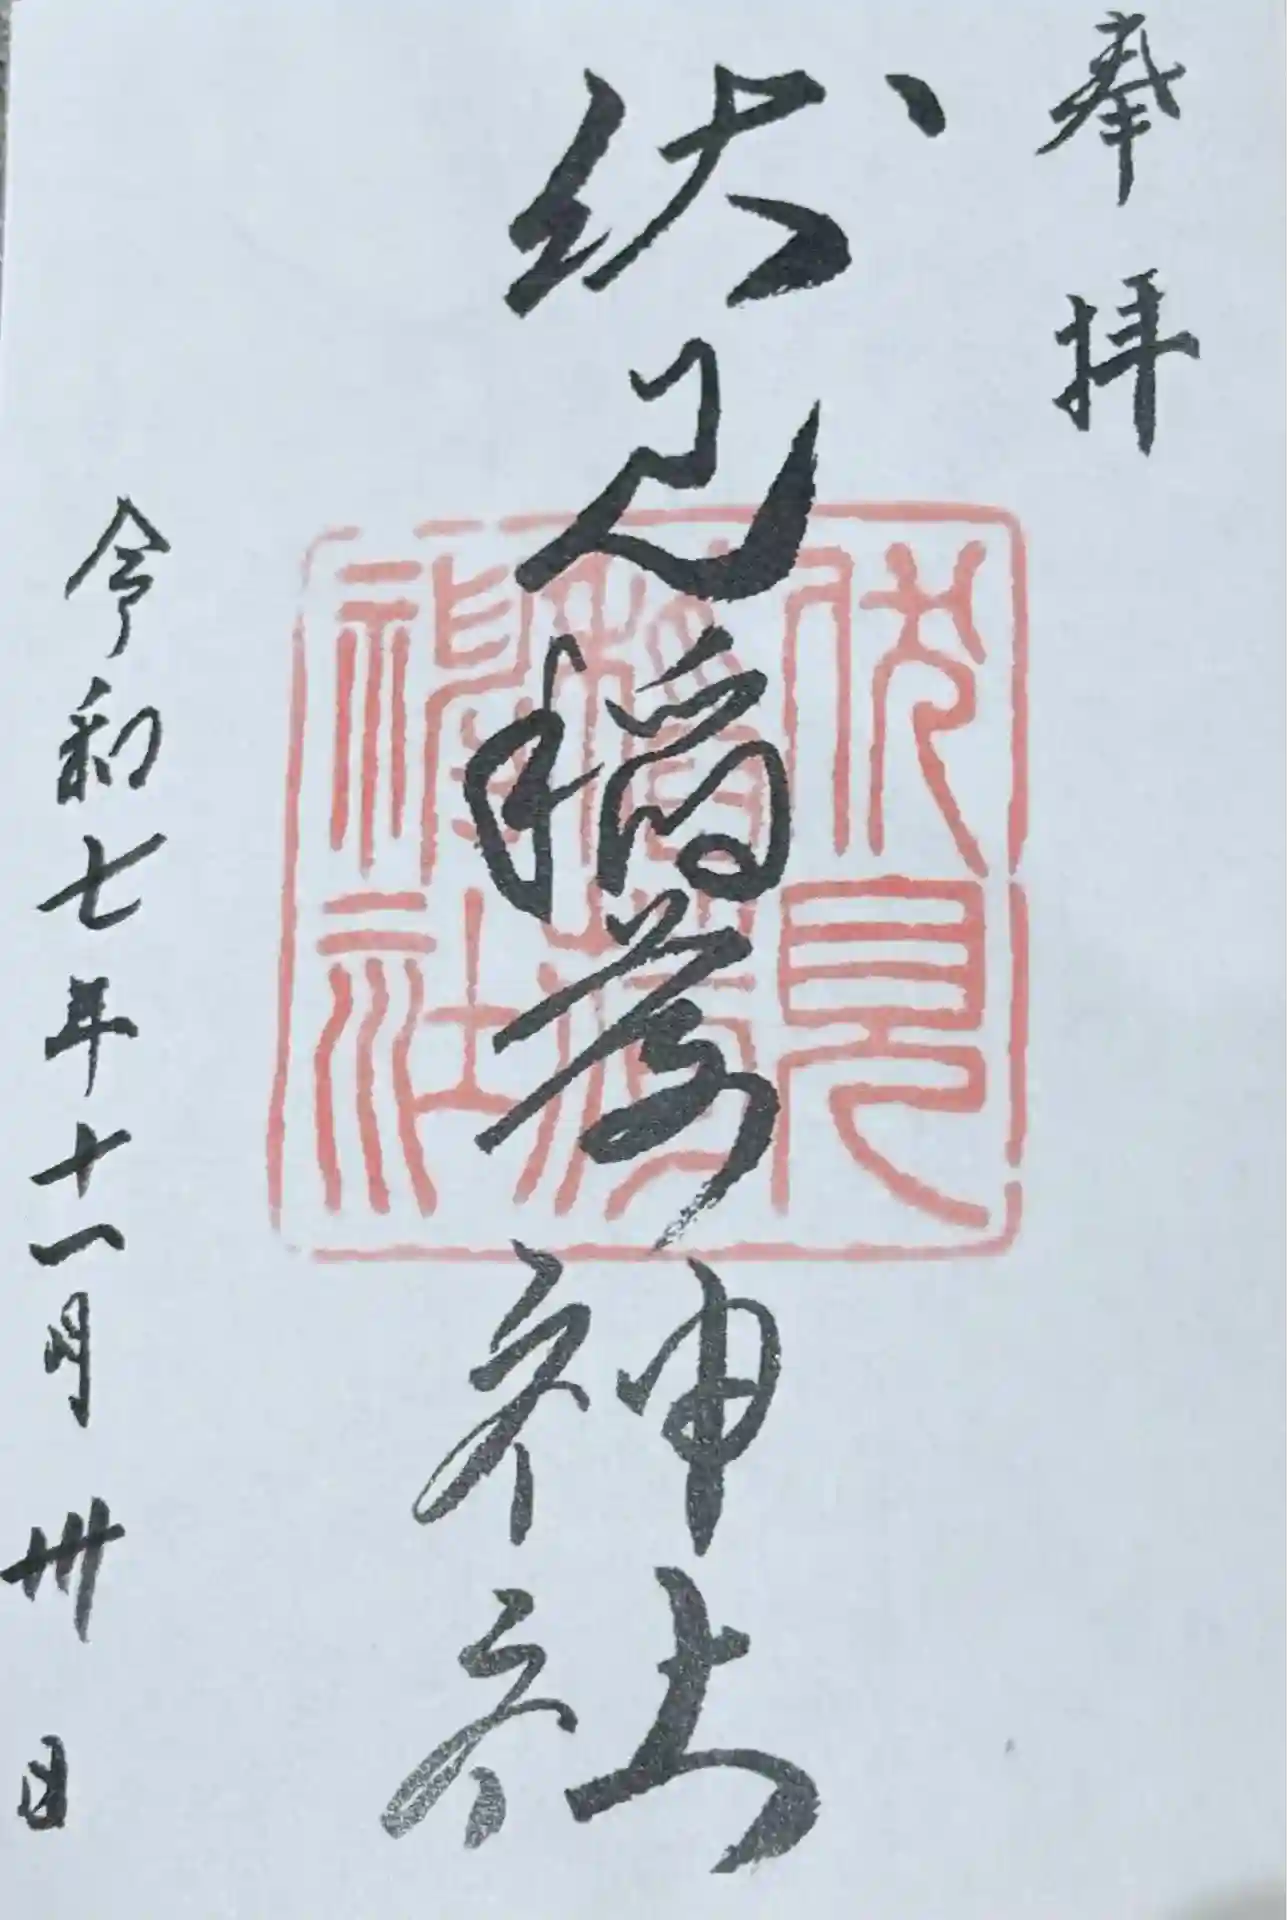 奉拝
伏見稲荷神社
伏見
稲荷
神社
令和七年十一月卅日